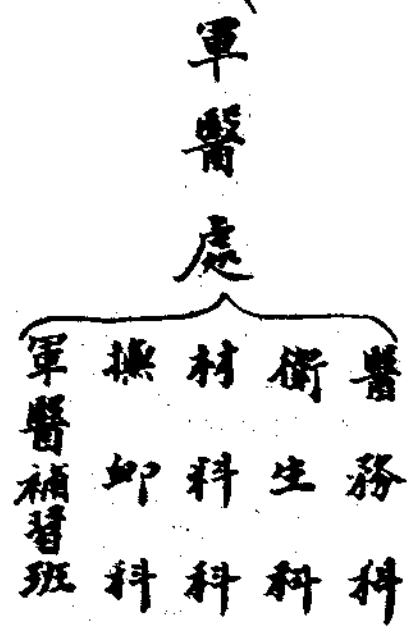 軍醫處
醫務科
衛生科
材料科
撫卹科
軍醫補習班